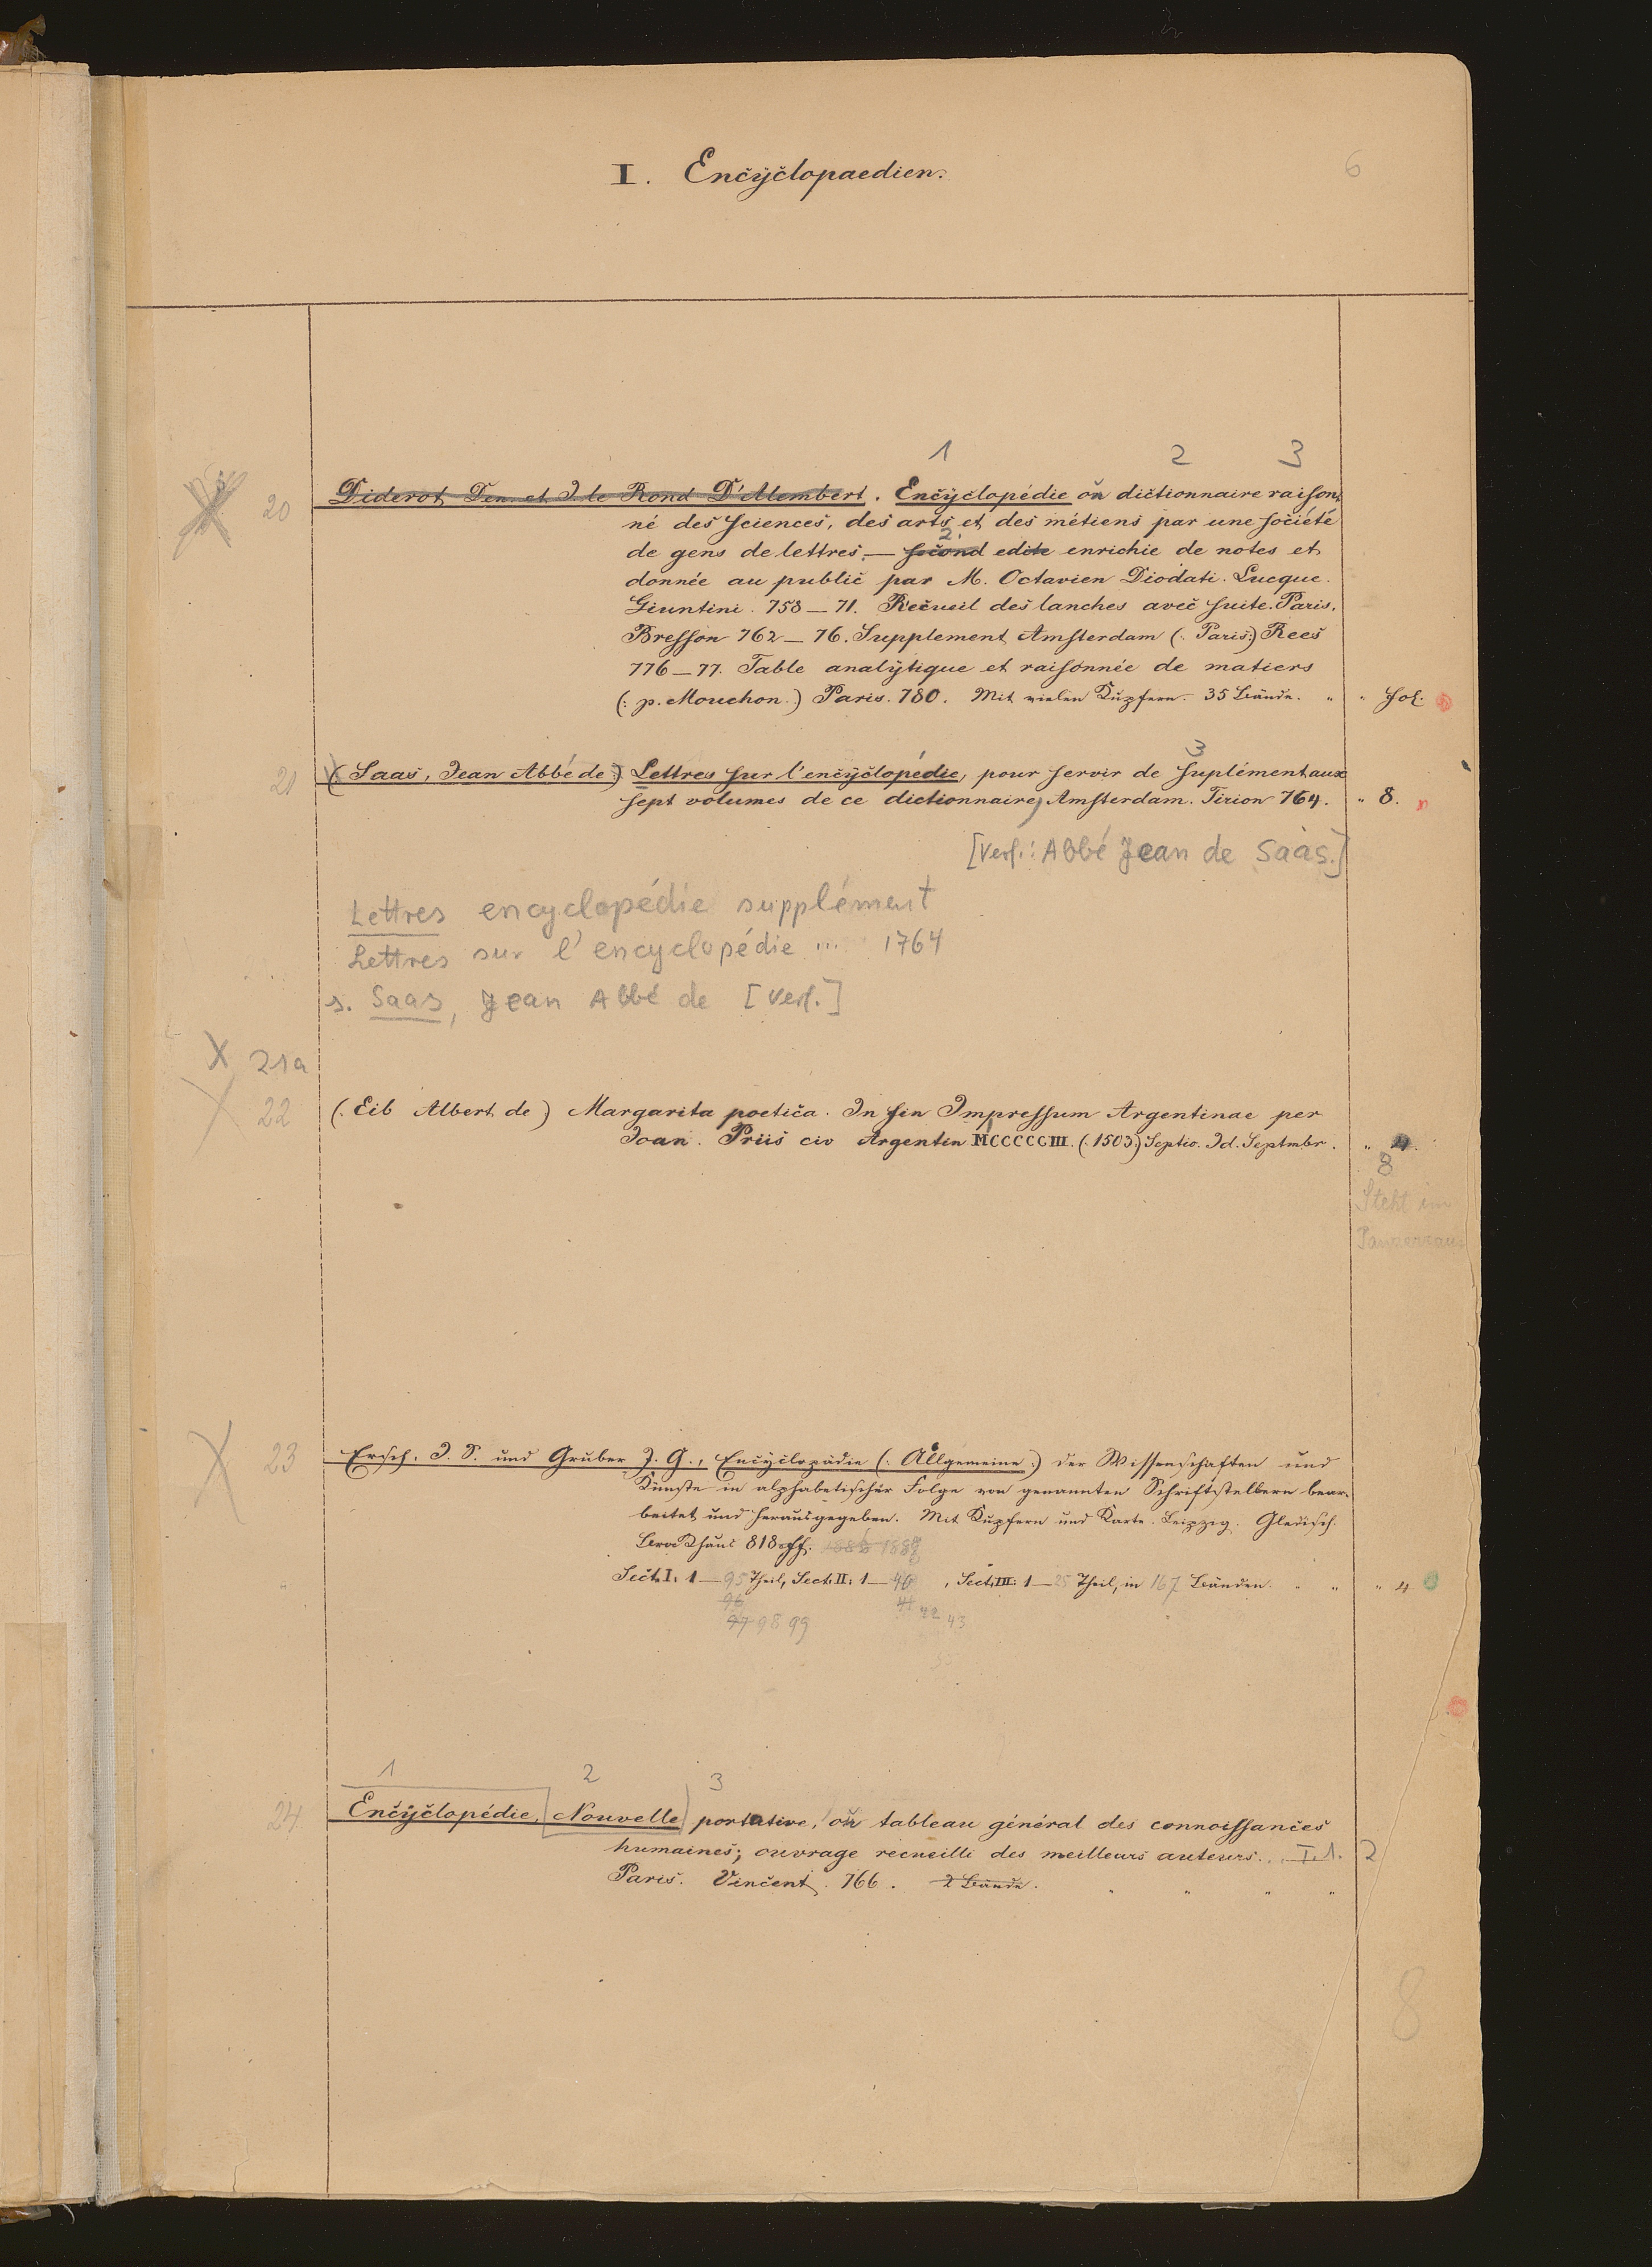 I. Encyclopaedien.
6
1 2 3
20 Diderot Den. et J. le Rond D'Alembert. Encyclopédie ou dictionnaire raison-
né des sciences, des arts et des métiens par une société
2.
de gens de lettres. — second edite enrichie de notes et
donnée au public par M. Octavien Diodati. Lucque.
Giuntini. 758—71. Recueil des lanches avec suite. Paris.
Bresson 762—76. Supplement Amsterdam (: Paris:) Rees
776—77. Table analytique et raisonnée de matiers
(: p. Mouchon.) Paris. 780. Mit vielen Kupfern. 35 Bände. " " Fol.
3
21 (Saas, Jean Abbé de:) Lettres sur l'encyclopédie, pour servir de suplément aux
sept volumes de ce dictionnaire, Amsterdam. Tirion 764. " 8.
[Verf.: Abbé Jean de Saas.]
Lettres encyclopédie supplément
Lettres sur l'encyclopédie ... 1764
s. Saas, Jean Abbé de [Verf.]
X 21a
X 22 (: Eib Albert de) Margarita poetica. In fin Impressum Argentinae per
Joan. Priis civ Argentin MCCCCCIII. (: 1503) Septio. Id. Septmbr. " 4.
8
Steht im
X 23 Ersch, J. S. und Gruber J. G., Encyclopädie (: Allgemeine:) der Wissenschaften und
Künste in alphabetischer Folge von genannten Schriftstellern bear-
beitet und herausgegeben. Mit Kupfern und Karte. Leipzig. Gledisch.
Brockhaus 818 ff. 1889
Sect. I: 1—95 Theil, Sect. II: 1—40, Sect. III: 1—25 Theil, in 167 Bänden. " " " 4.
96 41 42 43
97 98 99
1 2 3
24 Encyclopédie, Nouvelle portative, ou tableau général des connoissances
humaines; ouvrage recueilli des meilleurs auteurs. . I. 1. 2
Paris. Vincent. 766. 2 Bände. " " " "
8